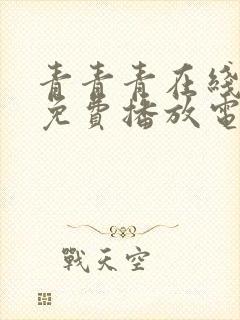 青青青在线
免費播放電
戰天空